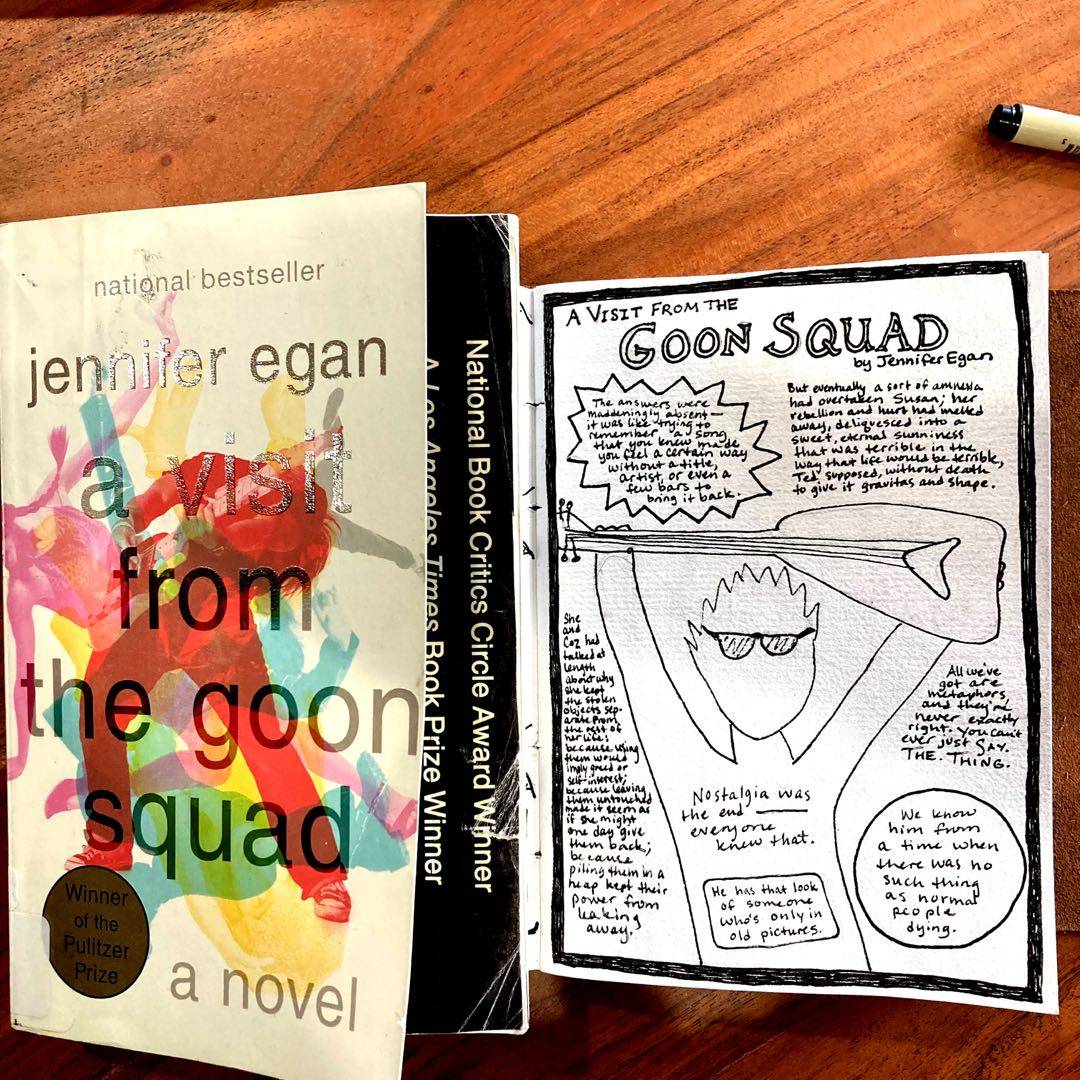 national bestseller
jennifer egan
a visit
from
the goon
squad
Winner
of the
Pulitzer
Prize
a novel
National Book Critics Circle Award Winner
A Los Angeles Times Book Prize Winner
A VISIT FROM THE
GOON SQUAD
by Jennifer Egan
The answers were
maddeningly absent—
it was like trying to
remember a song
that you knew made
you feel a certain way
without a title,
artist, or even a
few bars to
bring it back.
But eventually a sort of amnesia
had overtaken Susan; her
rebellion and hurt had melted
away, deliquesced into a
sweet, eternal sunniness
that was terrible in the
way that life would be terrible,
Ted supposed, without death
to give it gravitas and shape.
She
and
Coz had
talked at
length
about why
she kept
the stolen
objects sep-
arate from
the rest of
her life;
because using
them would
imply greed or
self-interest;
because leaving
them untouched
made it seem as
if she might
one day give
them back;
because
piling them in a
heap kept their
power from
leaking
away.
All we've
got are
metaphors,
and they're
never exactly
right. You can't
ever just SAY.
THE. THING.
Nostalgia was
the end —
everyone
knew that.
He has that look
of someone
who's only in
old pictures.
We know
him from
a time when
there was no
such thing
as normal
people
dying.